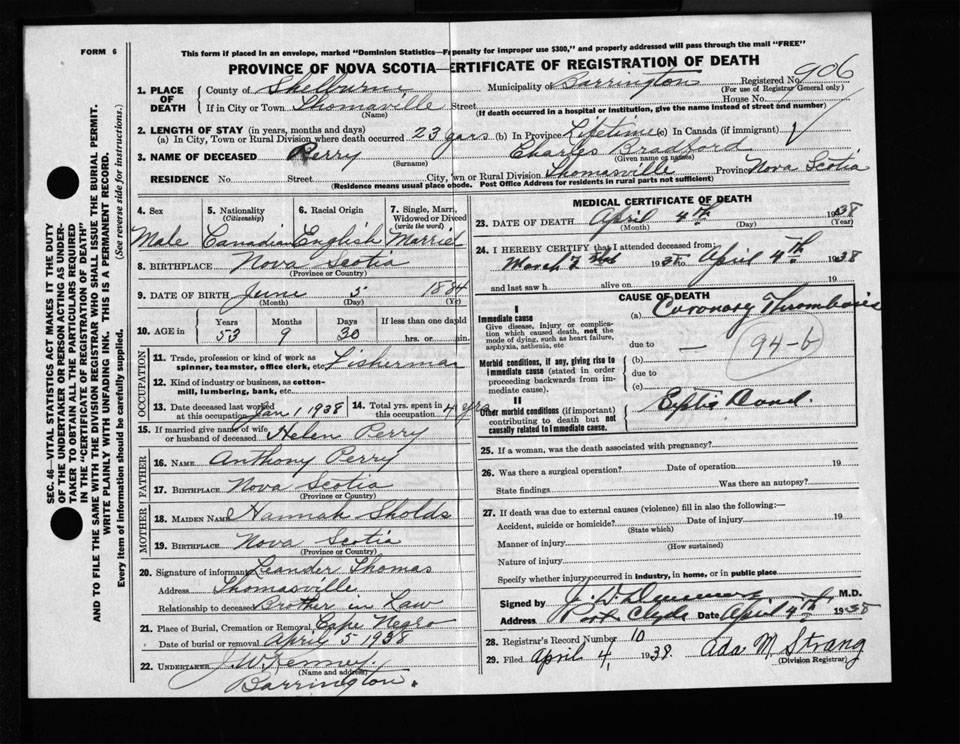 FORM 6
This form if placed in an envelope, marked "Dominion Statistics—Free penalty for improper use $300," and properly addressed will pass through the mail "FREE"
PROVINCE OF NOVA SCOTIA—ERTIFICATE OF REGISTRATION OF DEATH
Registered No. 906
(For use of Registrar General only)
1. PLACE OF DEATH
County of Shelburne Municipality of Barrington
If in City or Town Thomaville Street House No.
(Name) (If death occurred in a hospital or institution, give the name instead of street and number)
2. LENGTH OF STAY (in years, months and days)
(a) In City, Town or Rural Division where death occurred 23 yars (b) In Province Lifetime (c) In Canada (if immigrant)
3. NAME OF DECEASED Perry Charles Bradford
(Surname) (Given name or names)
RESIDENCE No. Street City, Town or Rural Division Thomasville Province Nova Scotia
(Residence means usual place of abode. Post Office Address for residents in rural parts not sufficient)
4. Sex
Male
5. Nationality (Citizenship)
Canadian
6. Racial Origin
English
7. Single, Marri, Widowed or Divorced (write the word)
Married
8. BIRTHPLACE Nova Scotia
(Province or Country)
9. DATE OF BIRTH June 5 1884
(Month) (Day) (Yr)
10. AGE in
Years Months Days If less than one day old
53 9 30 hrs. or min.
OCCUPATION
11. Trade, profession or kind of work as spinner, teamster, office clerk, etc. Fisherman
12. Kind of industry or business, as cotton-mill, lumbering, bank, etc.
13. Date deceased last worked at this occupation Jan 1 1938
14. Total yrs. spent in this occupation 4 yrs
15. If married give name of wife or husband of deceased Helen Perry
FATHER
16. NAME Anthony Perry
17. BIRTHPLACE Nova Scotia
(Province or Country)
MOTHER
18. MAIDEN NAME Hannah Sholds
19. BIRTHPLACE Nova Scotia
(Province or Country)
20. Signature of informant Leander Thomas
Address Thomasville
Relationship to deceased Brother in Law
21. Place of Burial, Cremation or Removal Cape Negro
Date of burial or removal April 5 1938
22. UNDERTAKER J. W. Kenney
(Name and address)
Barrington.
MEDICAL CERTIFICATE OF DEATH
23. DATE OF DEATH April 4th 1938
(Month) (Day) (Year)
24. I HEREBY CERTIFY that I attended deceased from:
March 2 1938 to April 4th 1938
and last saw h alive on 19
CAUSE OF DEATH
I
Immediate cause
Give disease, injury or complication which caused death, not the mode of dying, such as heart failure, asphyxia, asthenia, etc
(a) Coronary Thrombosis
due to —
94-b
Morbid conditions, if any, giving rise to immediate cause (stated in order proceeding backwards from immediate cause).
(b)
due to
(c)
II
Other morbid conditions (if important) contributing to death but not causally related to immediate cause.
25. If a woman, was the death associated with pregnancy?
26. Was there a surgical operation? Date of operation 19
State findings Was there an autopsy?
27. If death was due to external causes (violence) fill in also the following:—
Accident, suicide or homicide? Date of injury 19
(State which)
Manner of injury
(How sustained)
Nature of injury
Specify whether injury occurred in industry, in home, or in public place
Signed by M.D.
Address Port Clyde Date April 4th 1938
28. Registrar's Record Number 10
29. Filed April 4, 1938. Ada M. Strang
(Division Registrar)
SEC. 46—VITAL STATISTICS ACT MAKES IT THE DUTY
OF THE UNDERTAKER OR PERSON ACTING AS UNDER-
TAKER TO OBTAIN ALL THE PARTICULARS REQUIRED
IN THE "CERTIFICATE OF REGISTRATION OF DEATH"
AND TO FILE THE SAME WITH THE DIVISION REGISTRAR WHO SHALL ISSUE THE BURIAL PERMIT.
WRITE PLAINLY WITH UNFADING INK. THIS IS A PERMANENT RECORD.
Every item of information should be carefully supplied. (See reverse side for instructions.)